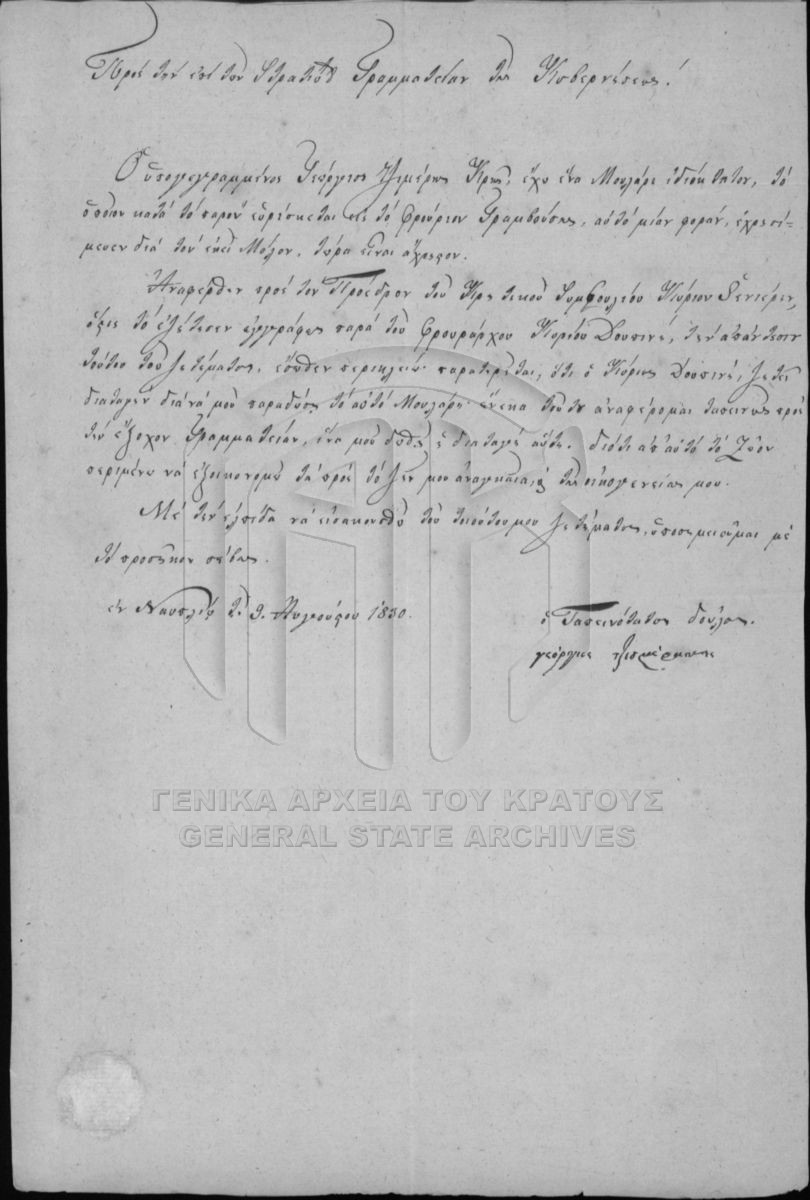 Πρὸς τὴν ἐπὶ τῶν Στρατ/κῶν Γραμματείαν τῆς Κυβερνήσεως!
Ὁ ὑπογεγραμμένος Γεώργιος Κρὴς, ἔχω ἕνα Μουλάρι ἰδιόκτητον, τὸ
ὁποῖον κατὰ τὸ παρὸν εὑρίσκεται εἰς τὸ Φρούριον Γραμβούσης, αὐτὸ μίαν φορὰν, ἐχρησί-
μευεν διὰ τὸν ἐκεῖ Μύλον, τώρα εἶναι ἄχρηστον.
Ἀναφέρθην πρὸς τὸν Πρόεδρον τοῦ Κρητικοῦ Συμβουλίου Κύριον Ρενιέρην,
ὅστις τὸ ἐζήτησεν ἐγγράφως παρὰ τοῦ Φρουράρχου Κυρίου Δουπινὲ, τὴν ἀπάντησιν
τούτου τοῦ ζητήματος, ἔσωθεν περικλείω· παρατηρεῖται, ὅτι ὁ Κύριος Δουπινὲ, ζητεῖ
διαταγὴν διὰ νὰ μοῦ παραδώσῃ τὸ αὐτὸ Μουλάρι· ἕνεκα τούτου ἀναφέρομαι ταπεινῶς πρὸς
τὴν ἔξοχον Γραμματείαν, ἵνα μοῦ δοθῇ ἡ διαταγὴ αὕτη. διότι ἀπ' αὐτὸ τὸ Ζῶον
περιμένω νὰ ἐξοικονομῶ τὰ πρὸς τὸ ζῆν μου ἀναγκαῖα, τῆς οἰκογενείας μου.
Μὲ τὴν ἐλπίδα νὰ εἰσακουσθῶ τοῦ τοιούτου μου ζητήματος, ὑποσημειοῦμαι μὲ
τὸ προσῆκον σέβας.
ἐν Ναυπλίῳ τῇ 9. Αὐγούστου 1830.
ὁ Ταπεινότατος δοῦλος.
γεόργιος
ΓΕΝΙΚΑ ΑΡΧΕΙΑ ΤΟΥ ΚΡΑΤΟΥΣ
GENERAL STATE ARCHIVES